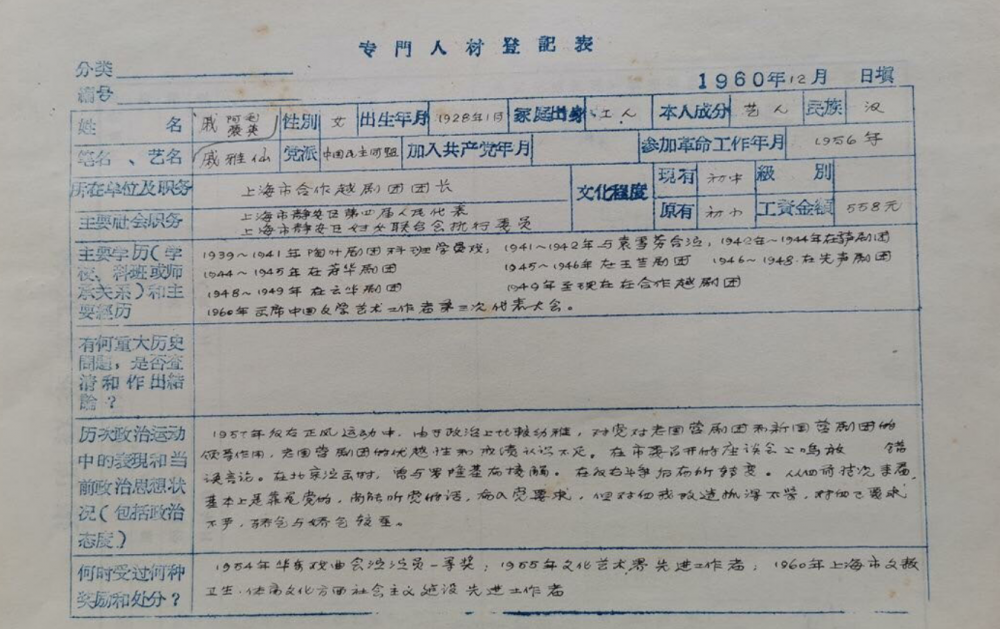 专門人材登記表
分类
編号
1960年12月 日填
姓名 戚 阿毛 袭英 性別 女 出生年月 1928年1月 家庭出身 工人 本人成分 艺人 民族 汉
笔名、艺名 戚雅仙 党派 中国民主同盟 加入共产党年月 参加革命工作年月 1956年
所在单位及职务 上海市合作越剧团团长 文化程度 现有 初中 級別
主要社会职务 上海市静安区第四届人民代表 原有 初小 工資金額 558元
上海市静安区妇女联合会执行委员
主要学历(学 1939~1941年陶叶剧团科班学员戏; 1941~1942年与袁雪芬合泣; 1942年~1944年在葫剧团
校、科班或师 1944~1945年在若华剧团 1945~1946年在玉兰剧团 1946~1948.在先声剧团
承关系)和主 1948~1949年在云华剧团 1949年至现在在合作越剧团
要經历 1960年出席中国文学艺术工作者第三次代表大会。
有何重大历史
問題,是否查
清和作出結
論?
历次政治运动 1957年反右正风运动中,由于政治上比較幼稚,对党对老国营剧团和新国营剧团的
中的表現和当 領导作用,老国营剧团的优越性和成绩认识不足。在市委召开的座谈会上鸣放 错
前政治思想状 误言论。在北京泣出时,曾与罗隆基有接触。在反右斗争初有所转变。
况(包括政治 基本上是靠近党的,尚能听党的话,有入党要求,但对自我改造抓得不紧,对自己要求
态度) 不严,骄色与娇色较重。
何时受过何种 1954年华东戏曲会泣演员一等奖;1955年文化艺术界先进工作者;1960年上海市文教
奖励和处分? 卫生、体育文化方面社会主义建设先进工作者